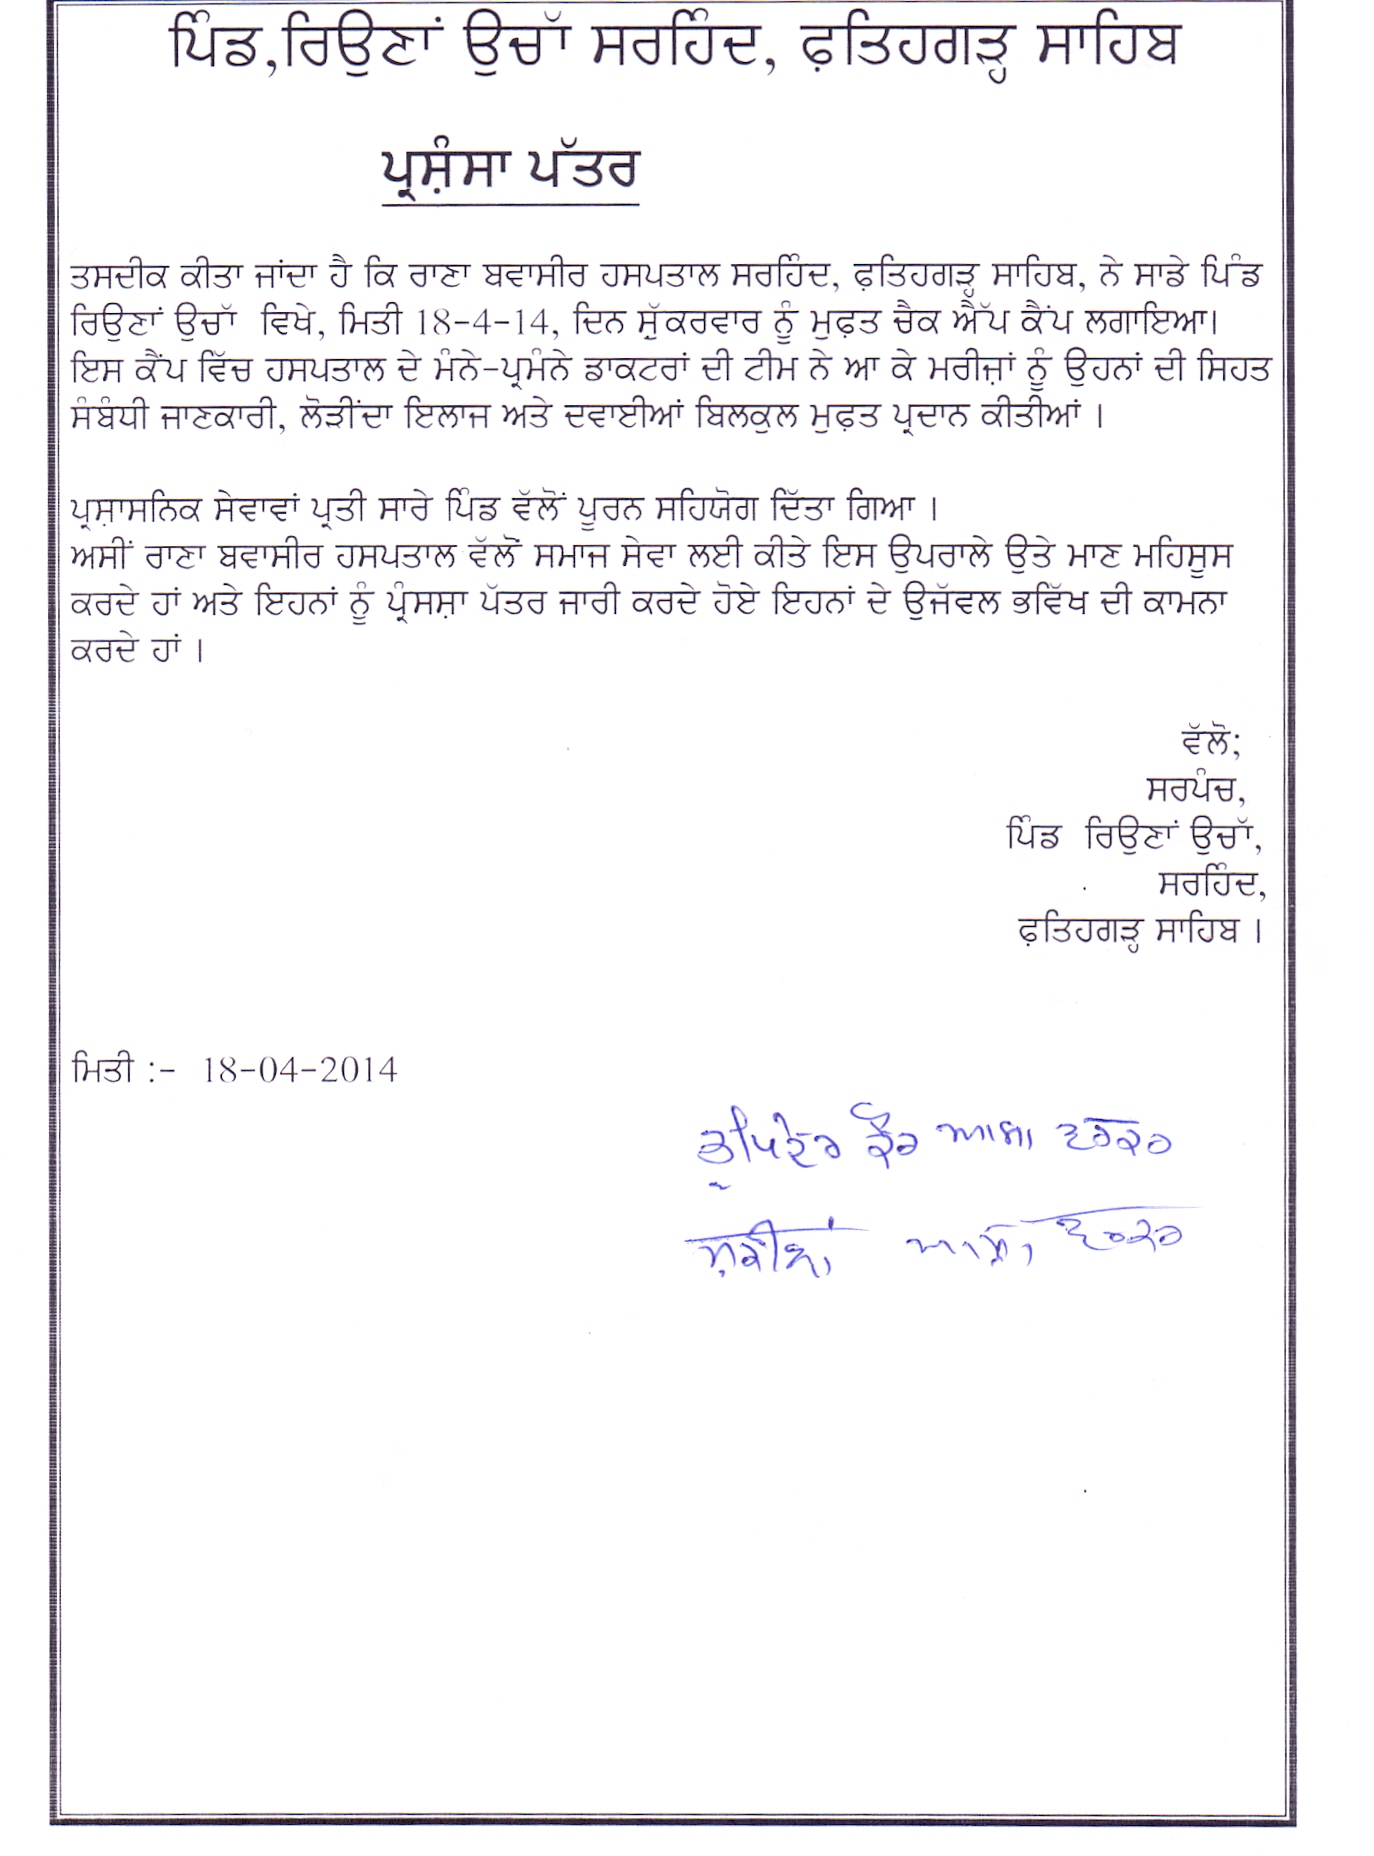 ਪਿੰਡ,ਰਿਉਣਾਂ ਉਚਾੱ ਸਰਹਿੰਦ, ਫ਼ਤਿਹਗੜ੍ਹ ਸਾਹਿਬ
ਪ੍ਰਸ਼ੰਸਾ ਪੱਤਰ
ਤਸਦੀਕ ਕੀਤਾ ਜਾਂਦਾ ਹੈ ਕਿ ਰਾਣਾ ਬਵਾਸੀਰ ਹਸਪਤਾਲ ਸਰਹਿੰਦ, ਫ਼ਤਿਹਗੜ੍ਹ ਸਾਹਿਬ, ਨੇ ਸਾਡੇ ਪਿੰਡ
ਰਿਉਣਾਂ ਉਚਾੱ ਵਿਖੇ, ਮਿਤੀ 18-4-14, ਦਿਨ ਸ਼ੁੱਕਰਵਾਰ ਨੂੰ ਮੁਫ਼ਤ ਚੈਕ ਐੱਪ ਕੈਂਪ ਲਗਾਇਆ।
ਇਸ ਕੈਂਪ ਵਿੱਚ ਹਸਪਤਾਲ ਦੇ ਮੰਨੇ-ਪ੍ਰਮੰਨੇ ਡਾਕਟਰਾਂ ਦੀ ਟੀਮ ਨੇ ਆ ਕੇ ਮਰੀਜ਼ਾਂ ਨੂੰ ਉਹਨਾਂ ਦੀ ਸਿਹਤ
ਸੰਬੰਧੀ ਜਾਣਕਾਰੀ, ਲੋੜੀਂਦਾ ਇਲਾਜ ਅਤੇ ਦਵਾਈਆਂ ਬਿਲਕੁਲ ਮੁਫ਼ਤ ਪ੍ਰਦਾਨ ਕੀਤੀਆਂ ।
ਪ੍ਰਸ਼ਾਸਨਿਕ ਸੇਵਾਵਾਂ ਪ੍ਰਤੀ ਸਾਰੇ ਪਿੰਡ ਵੱਲੋਂ ਪੂਰਨ ਸਹਿਯੋਗ ਦਿੱਤਾ ਗਿਆ ।
ਅਸੀਂ ਰਾਣਾ ਬਵਾਸੀਰ ਹਸਪਤਾਲ ਵੱਲੋਂ ਸਮਾਜ ਸੇਵਾ ਲਈ ਕੀਤੇ ਇਸ ਉਪਰਾਲੇ ਉਤੇ ਮਾਣ ਮਹਿਸੂਸ
ਕਰਦੇ ਹਾਂ ਅਤੇ ਇਹਨਾਂ ਨੂੰ ਪ੍ਰੰਸਸ਼ਾ ਪੱਤਰ ਜਾਰੀ ਕਰਦੇ ਹੋਏ ਇਹਨਾਂ ਦੇ ਉਜੱਵਲ ਭਵਿੱਖ ਦੀ ਕਾਮਨਾ
ਕਰਦੇ ਹਾਂ ।
ਵੱਲੋ;
ਸਰਪੰਚ,
ਪਿੰਡ ਰਿਉਣਾਂ ਉਚਾੱ,
ਸਰਹਿੰਦ,
ਫ਼ਤਿਹਗੜ੍ਹ ਸਾਹਿਬ ।
ਮਿਤੀ :- 18-04-2014
ਭੁਪਿੰਦਰ ਕੌਰ ਆਸ਼ਾ ਵਰਕਰ
ਆਸ਼ਾ ਵਰਕਰ